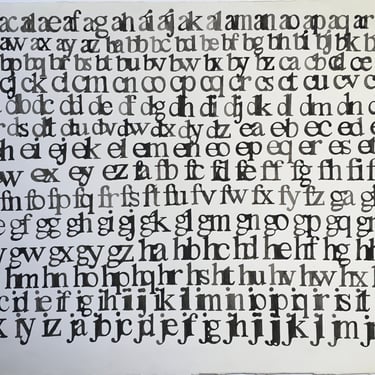 ac ad ae af ag ah ai aj ak al am an ao ap aq ar
aw ax ay az ba bb bc bd be bf bg bh bi bj bk b
bp bq br bs bt bu bv bw bx by bz ca cb cd ce
cj ck cl cm cn co cp cq cr cs ct cu cv c
db dc dd de df dg dh di dj dk dl dm dn
ds dt du dv dw dx dy dz ea eb ec ed e
eh ei ej ek el em en eo ep eq er es e
ew ex ey ez fa fb fc fd fe ff fg fh fi
fn fo fp fq fr fs ft fu fv fw fx fy fz ga g
ge gf gg gh gi gj gk gl gm gn go gp gq gr
gw gx gy gz ha hb hc hd he hf hg hh
hm hn ho hp hq hr hs ht hu hv hw hx
ic id ie if ig ih ii ij ik il im in io ip iq ir is it
ix iy iz ja jb jc jd je jf jg jh ji jj jk jl jm j